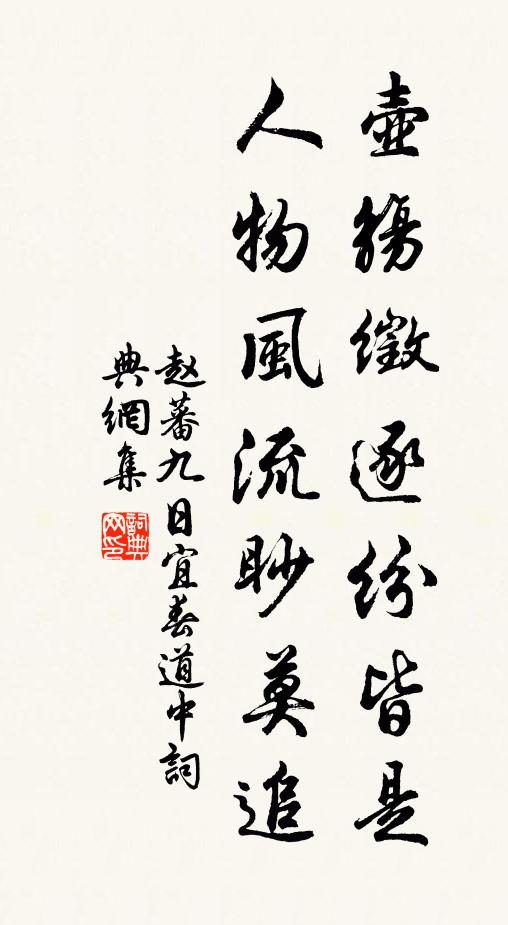 壺觴徵逐紛皆是
人物風流眇莫追
赵蕃九日宜春道中詞
典網集
詞典
网印